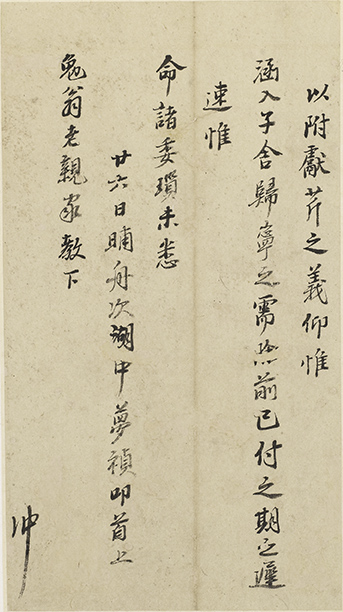 以附獻芹之義仰惟
涵入子舍歸寧之需然前已付之期之遲
速惟
命諸委瑣未悉
廿六日晡舟次湖中夢禎叩首上
兔翁老親家教下
沖